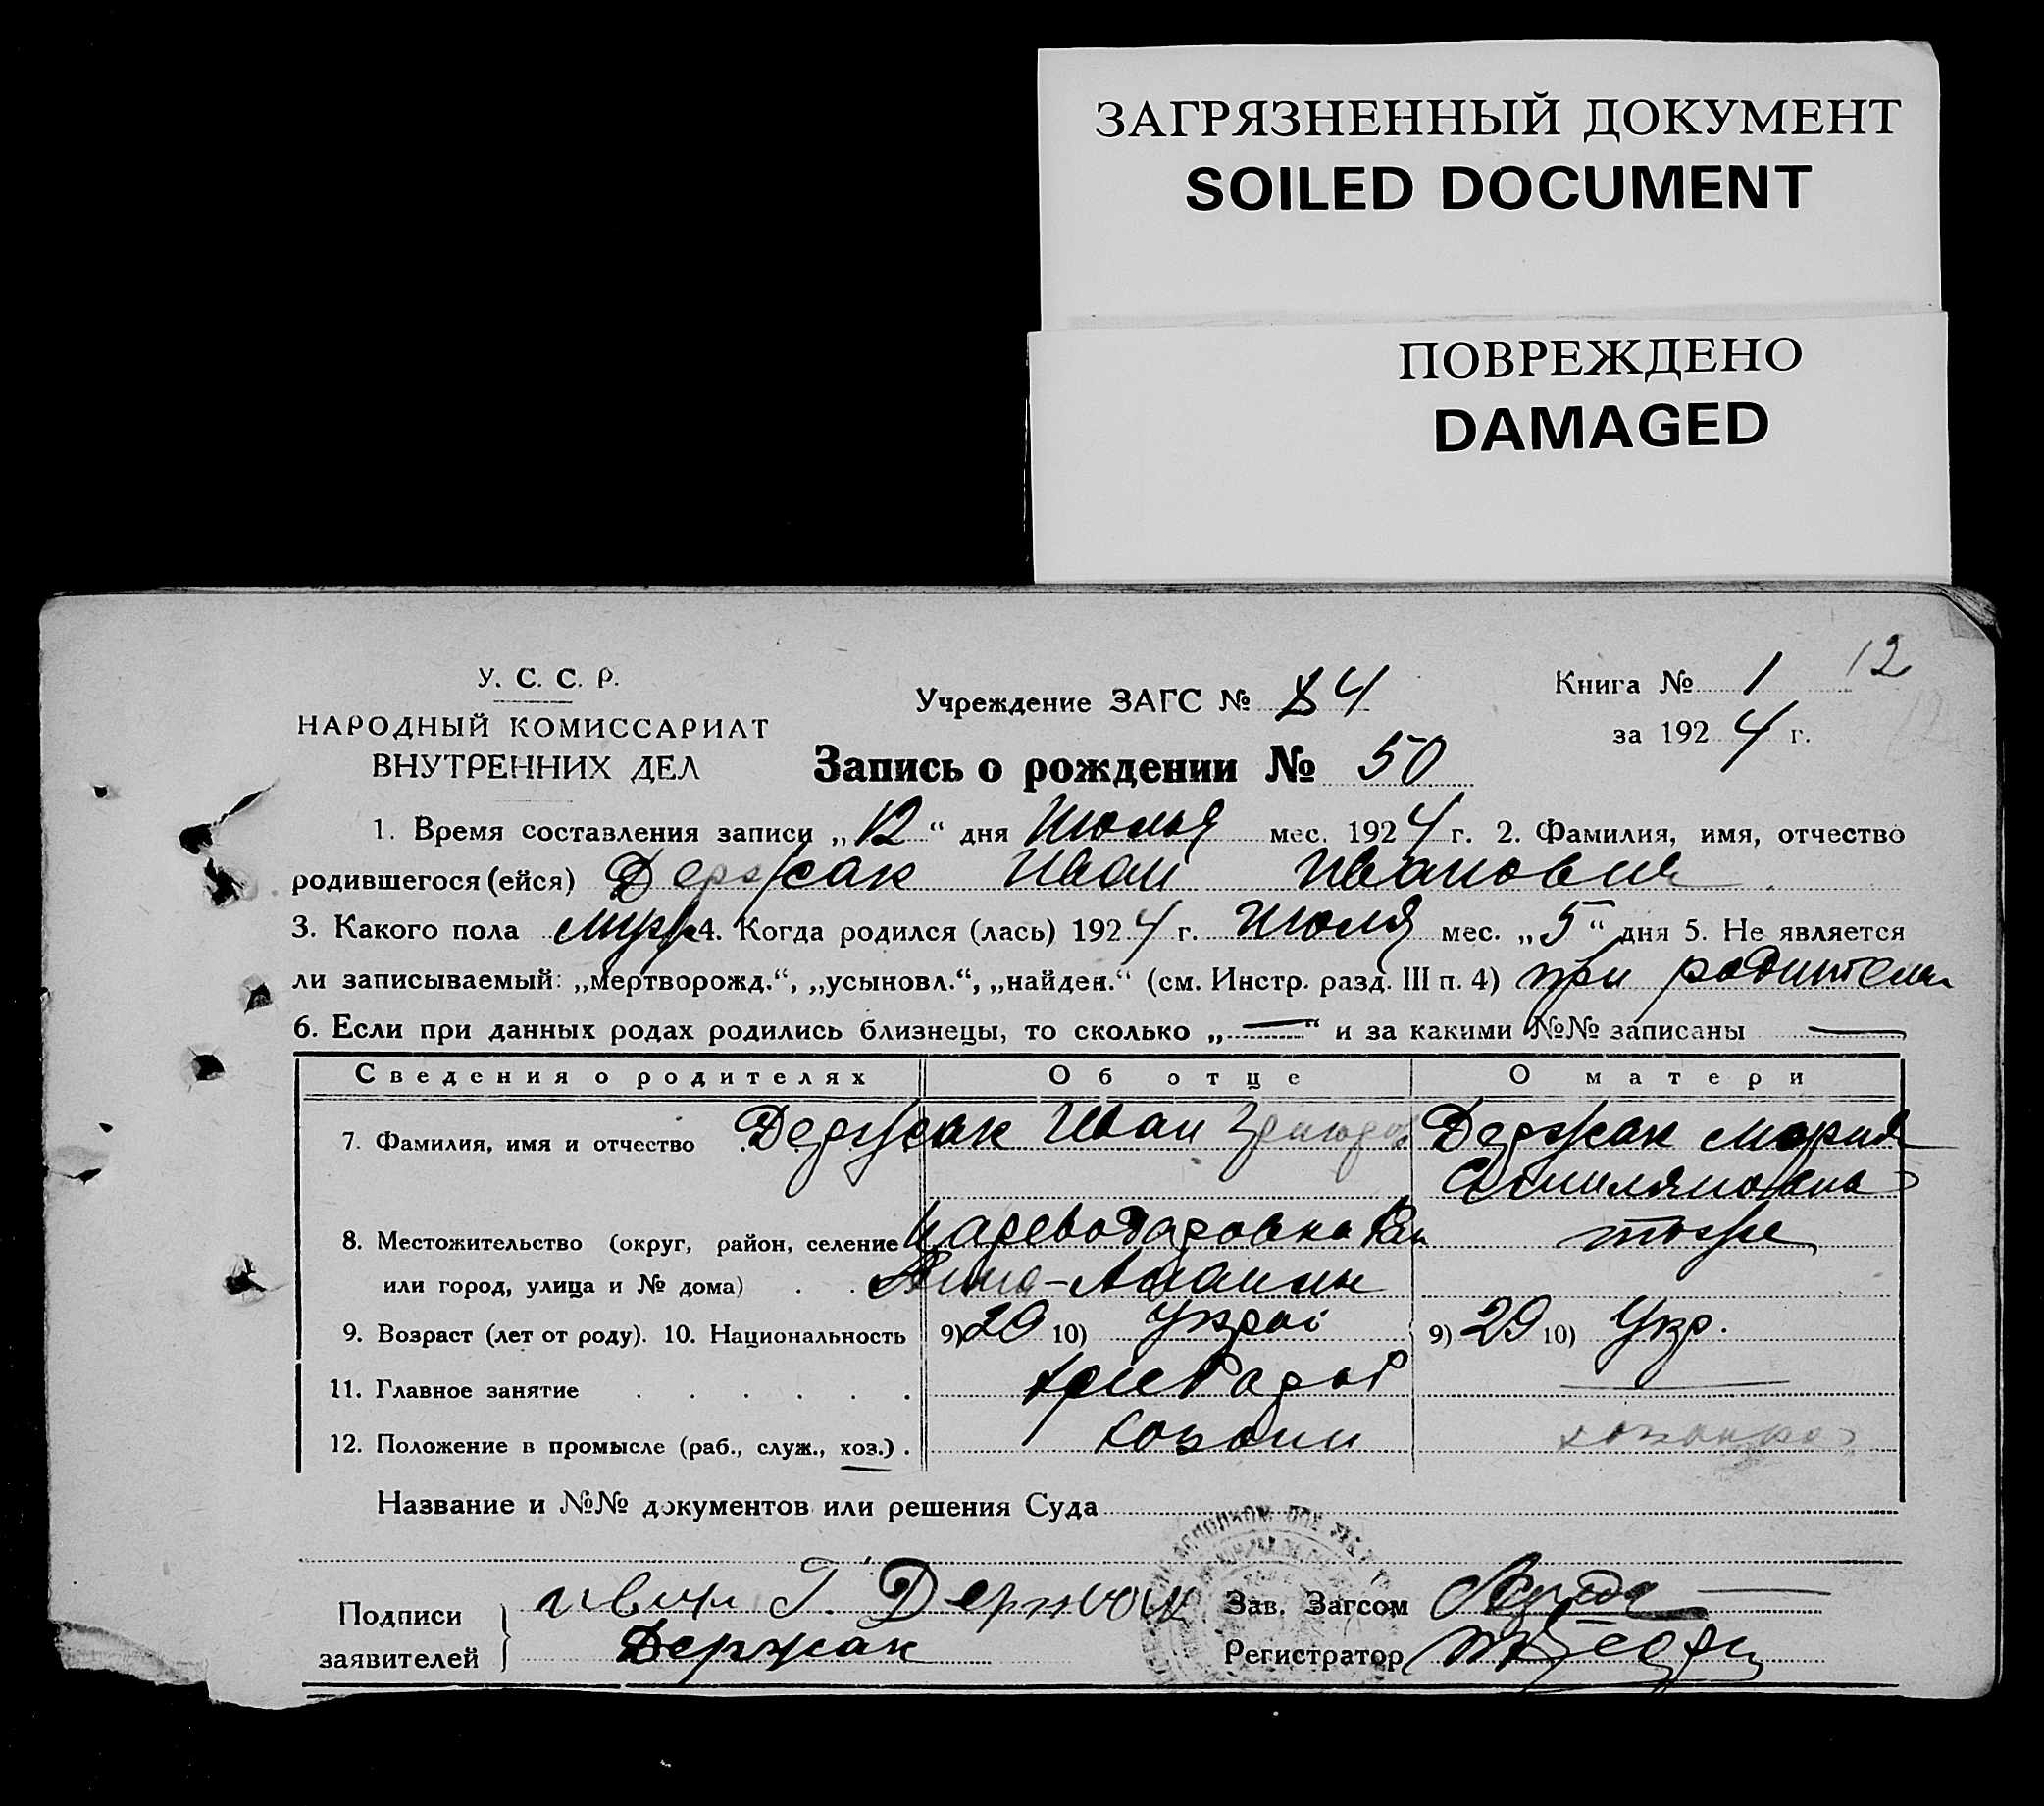 ЗАГРЯЗНЕННЫЙ ДОКУМЕНТ
SOILED DOCUMENT
ПОВРЕЖДЕНО
DAMAGED
12
У. С. С. Р.
НАРОДНЫЙ КОМИССАРИАТ
ВНУТРЕННИХ ДЕЛ
Учреждение ЗАГС № 84
Книга № 1
за 1924 г.
Запись о рождении № 50
1. Время составления записи „12“ дня Июлья мес. 1924 г. 2. Фамилия, имя, отчество
родившегося (ейся) Держак Иван Иванович
3. Какого пола муж 4. Когда родился (лась) 1924 г. Июля мес. „5“ дня 5. Не является
ли записываемый: „мертворожд.“, „усыновл.“, „найден.“ (см. Инстр. разд. III п. 4) при родители
6. Если при данных родах родились близнецы, то сколько „—“ и за какими №№ записаны —
Сведения о родителях Об отце О матери
7. Фамилия, имя и отчество Держак Иван Держак Мария
8. Местожительство (округ, район, селение тоже
или город, улица и № дома)
9. Возраст (лет от роду). 10. Национальность 9) 29 10) 9) 29 10) Укр.
11. Главное занятие —
12. Положение в промысле (раб., служ., хоз.)
Название и №№ документов или решения Суда
Подписи
заявителей
Держак
Зав. Загсом
Регистратор